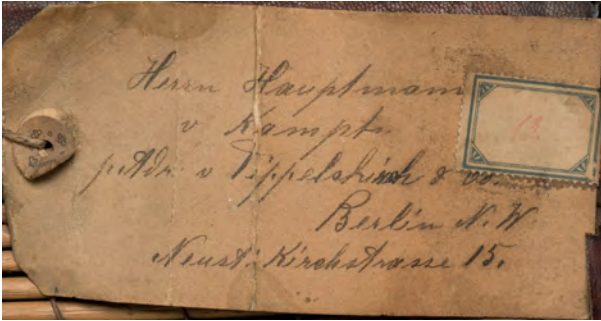 Herrn Hauptmann
v Kamptz
p. Adr. v Tippelskirch & Co.
Berlin N. W
Neust. Kirchstrasse 15.
13